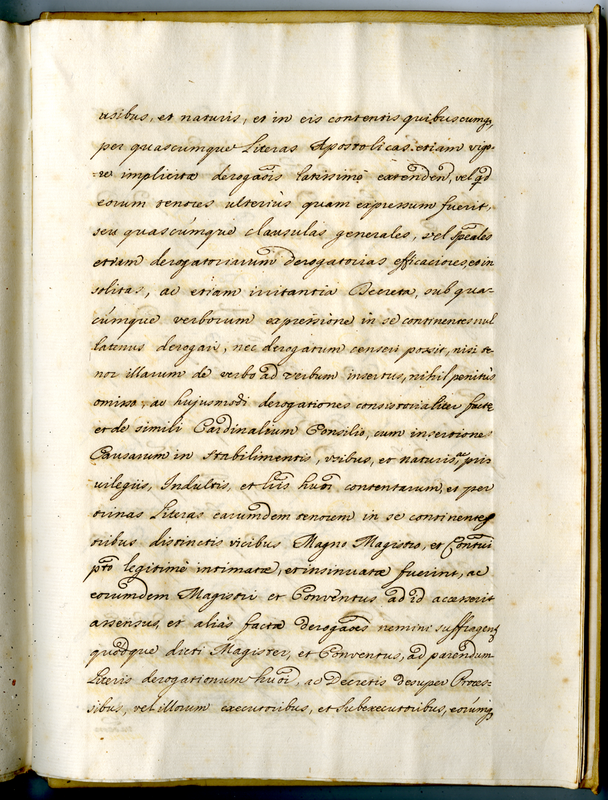 usibus, et naturis, et in eis contentis quibuscumq,
per quascumque Literas Apostolicas etiam vigo-
re implicitæ derogaõis latissimè extendeñ, vel qđ
eorum tenores ulterius quam expressum fuerit,
seu quascúmque clausulas generales, vel spẽales
etiam derogatoriarum derogatorias efficaciores, et in
solitas, ac etiam irritantia Decreta, sub qua-
cúmque verborum expressione in se continentes nul
latenus derogari, nec derogatum censeri possit, nisi te-
nor illarum de verbo ad verbum insertus, nihil penitùs
omisso, ac hujusmodi derogationes consistorialiter factæ
et de simili Cardinalium Consilio, cum insertione
Causarum in stabilimentis, usibus, et naturis, pri
vilegiis, Indultis, et Lr̃is huõi contentarum, et per
trinas Literas earumdem tenorum in se continentes
tribus distinctis vicibus Magno Magistro, et Conṽui
pto legitimè intimatæ, et insinuatæ fuerint, ac
eorumdem Magistri et Conventus ad id accesserit
assensus, et aliàs factæ derogaões nemini suffragenṫ
quodque dicti Magister, et Conventus, ad parendum
Literis derogationum huõi, ac Decretis desuper Proces-
sibus, vel illorum executoribus, et subexecutoribus, eorúmq